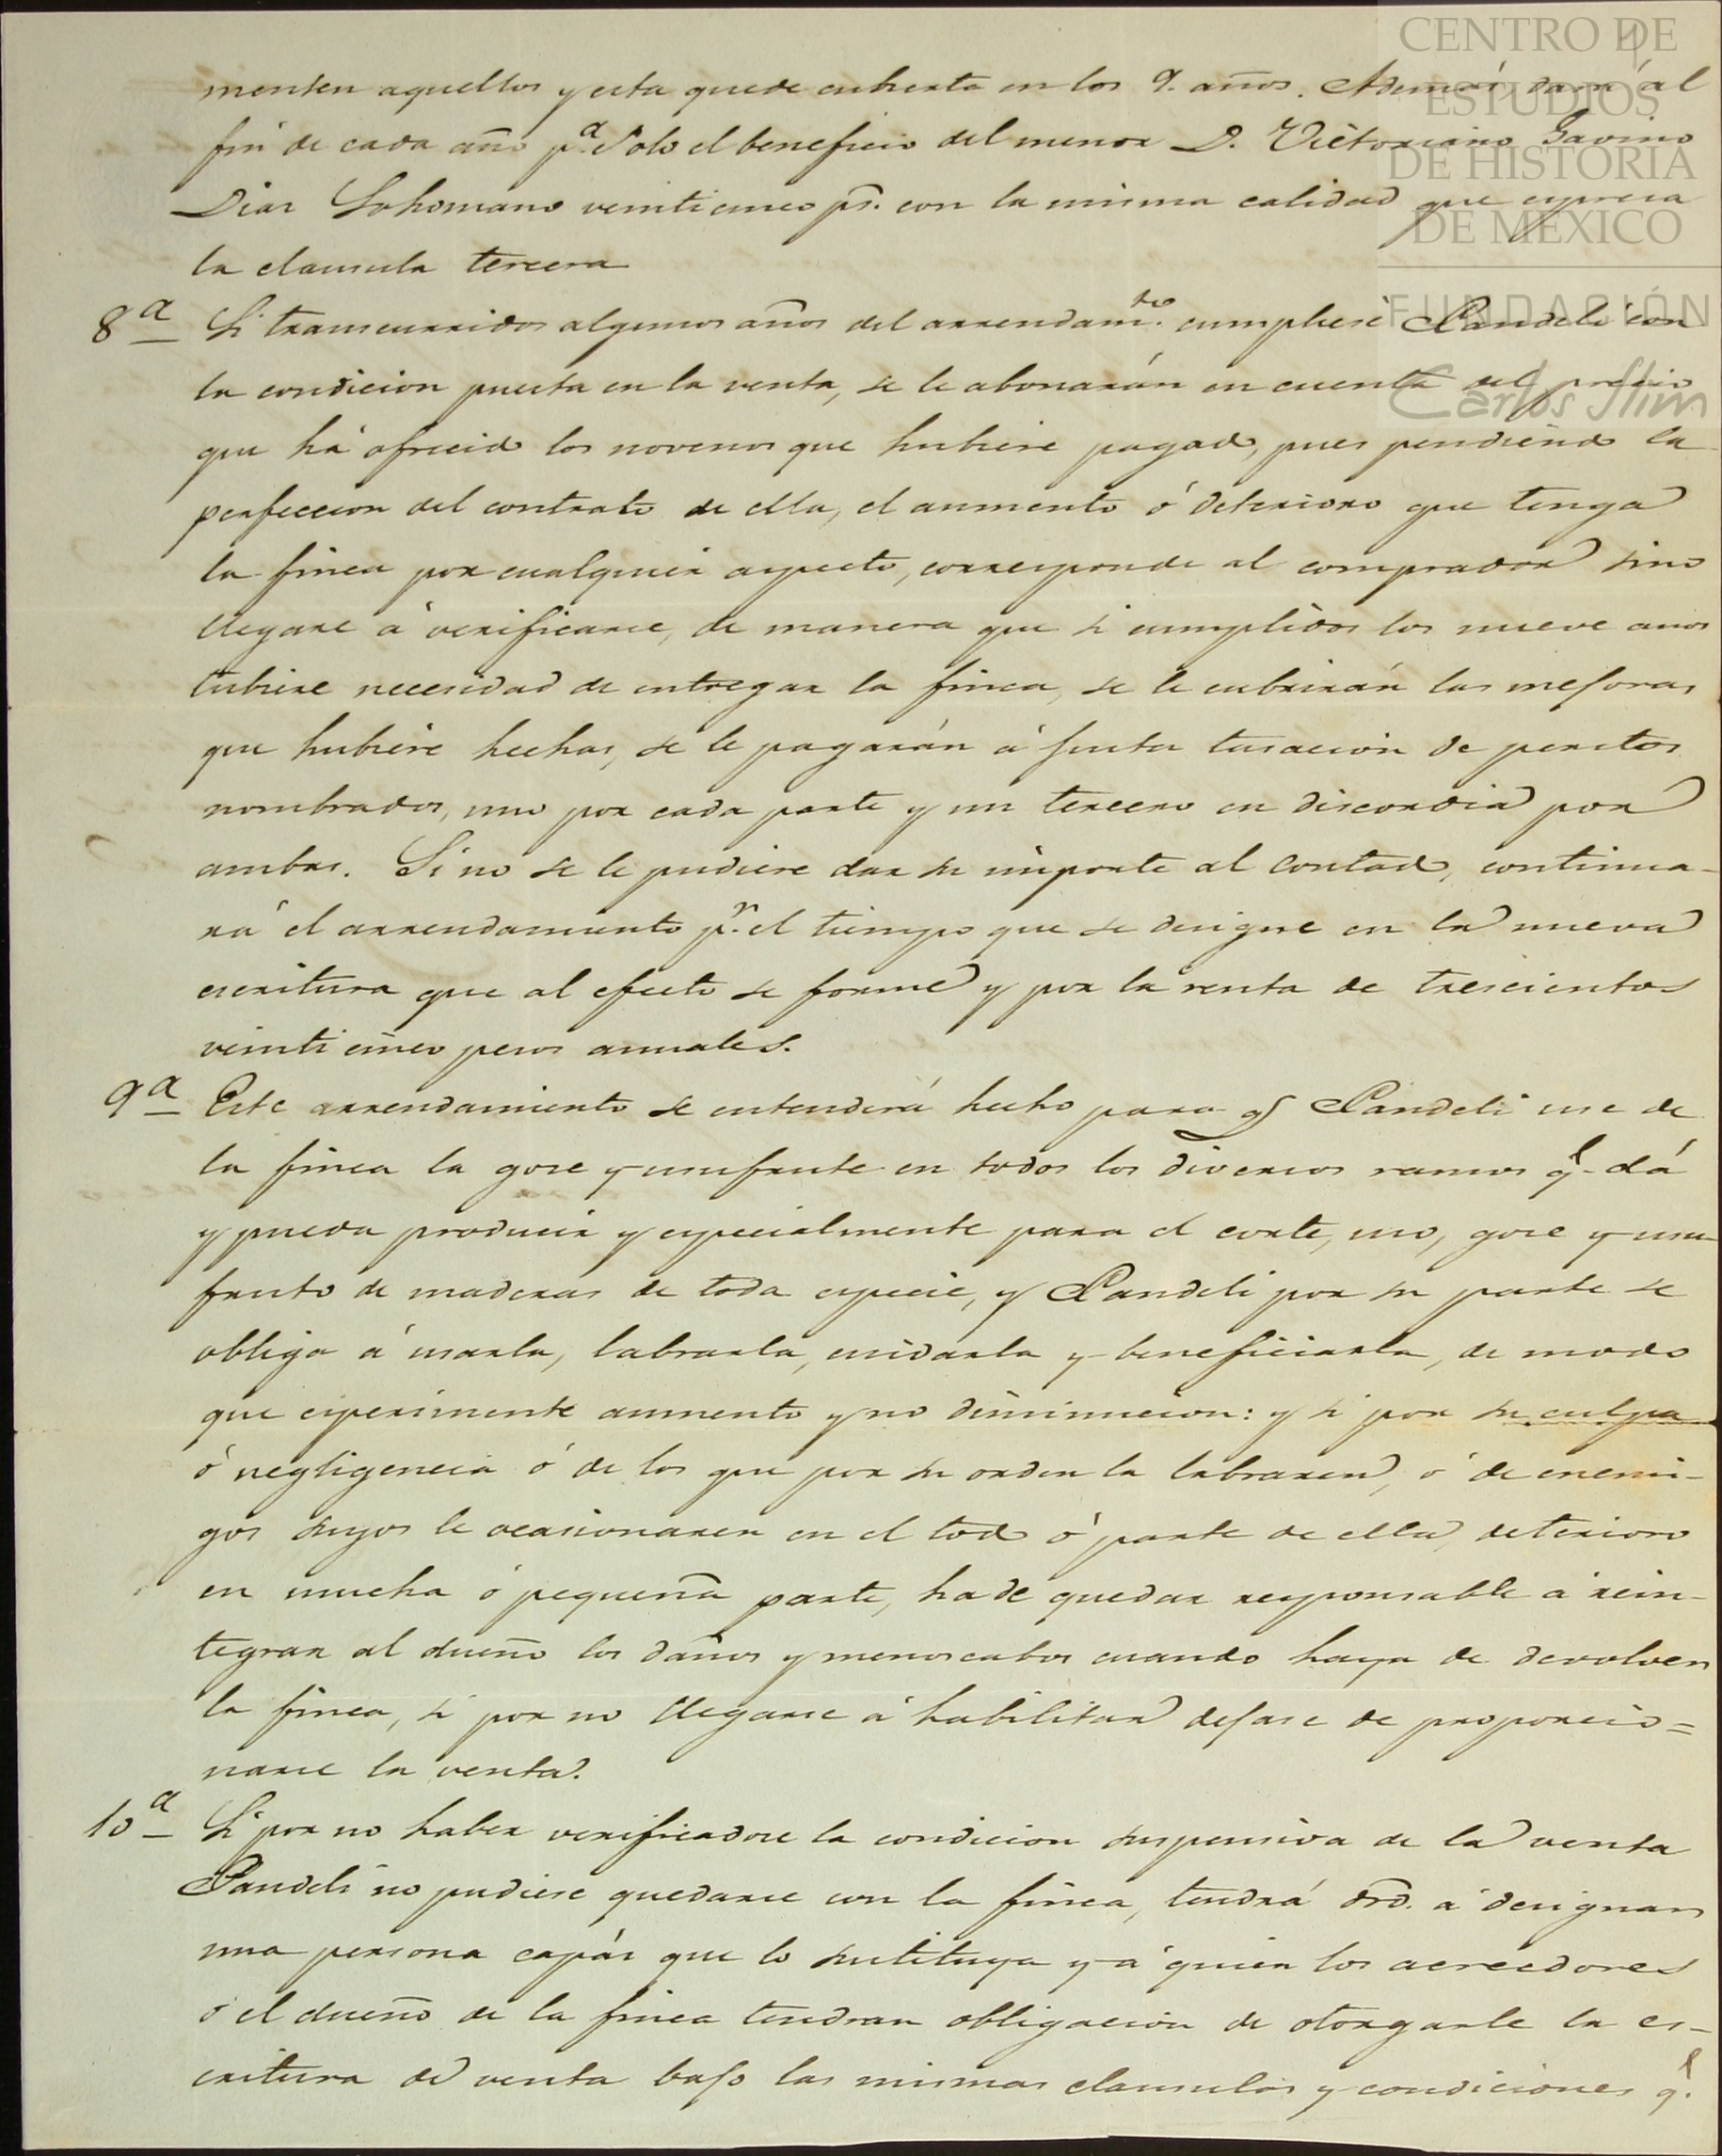 CENTRO DE
ESTUDIOS
DE HISTORIA
DE MÉXICO
FUNDACIÓN
Carlos Slim
menten aquellos y esta quede cubierta en los 9. años. Ademas dará al
fin de cada año p.ª solo el beneficio del menor D. Victoriano Gavino
Dias veinticinco ps. con la misma calidad que espresa
la clausula tercera
8ª Si transcurridos algunos años del arrendam.to cumpliese Pandeli con
la condicion puesta en la venta, se le abonarán en cuenta del precio
que há ofrecido los novenos que hubiere pagado, pues pendiendo la
perfeccion del contrato de ella, el aumento ó deterioro que tenga
la finca por cualquier aspecto, corresponde al comprador sino
llegare á verificarse, de manera que si cumplidos los nueve años
tubiere necesidad de entregar la finca, se le cubrirán las mejoras
que hubiere hechas, se le pagarán á justa tasacion de peritos
nombrados, uno por cada parte y un tercero en discordia por
ambas. Si no se le pudiere dar su importe al contado, continua-
rá el arrendamiento p.r el tiempo que se designe en la nueva
escritura que al efecto se forme y por la renta de trescientos
veinticinco pesos annales.
9ª Este arrendamiento se entenderá hecho para q Pandeli use de
la finca la gose y usufrute en todos los diversos ramos q.e dá
y pueda producir y especialmente para el corte, uso, gose y usu-
fruto de maderas de toda especie, y Pandeli por su parte se
obliga á usarla, labrarla, cuidarla y beneficiarla, de modo
que esperimente aumento y no diminucion: y si por su culpa
ó negligencia ó de los que por su orden la labraren, ó de enemi-
gos suyos le ocasionaren en el todo ó parte de ella, deterioro
en mucha ó pequeña parte, ha de quedar responsable á rein-
tegrar al dueño los daños y menoscabos cuando haya de devolver
la finca, si por no llegarse á habilitar dejase de proporcio=
narse la venta.
10ª Si por no haber verificadose la condicion suspensiva de la venta
Pandeli no pudiese quedarse con la finca, tendrá dro. á designar
una persona capás que lo sustituya y á quien los acreedores
ó el dueño de la finca tendran obligacion de otorgarle la es-
critura de venta bajo las mismas clausulas y condiciones q.e